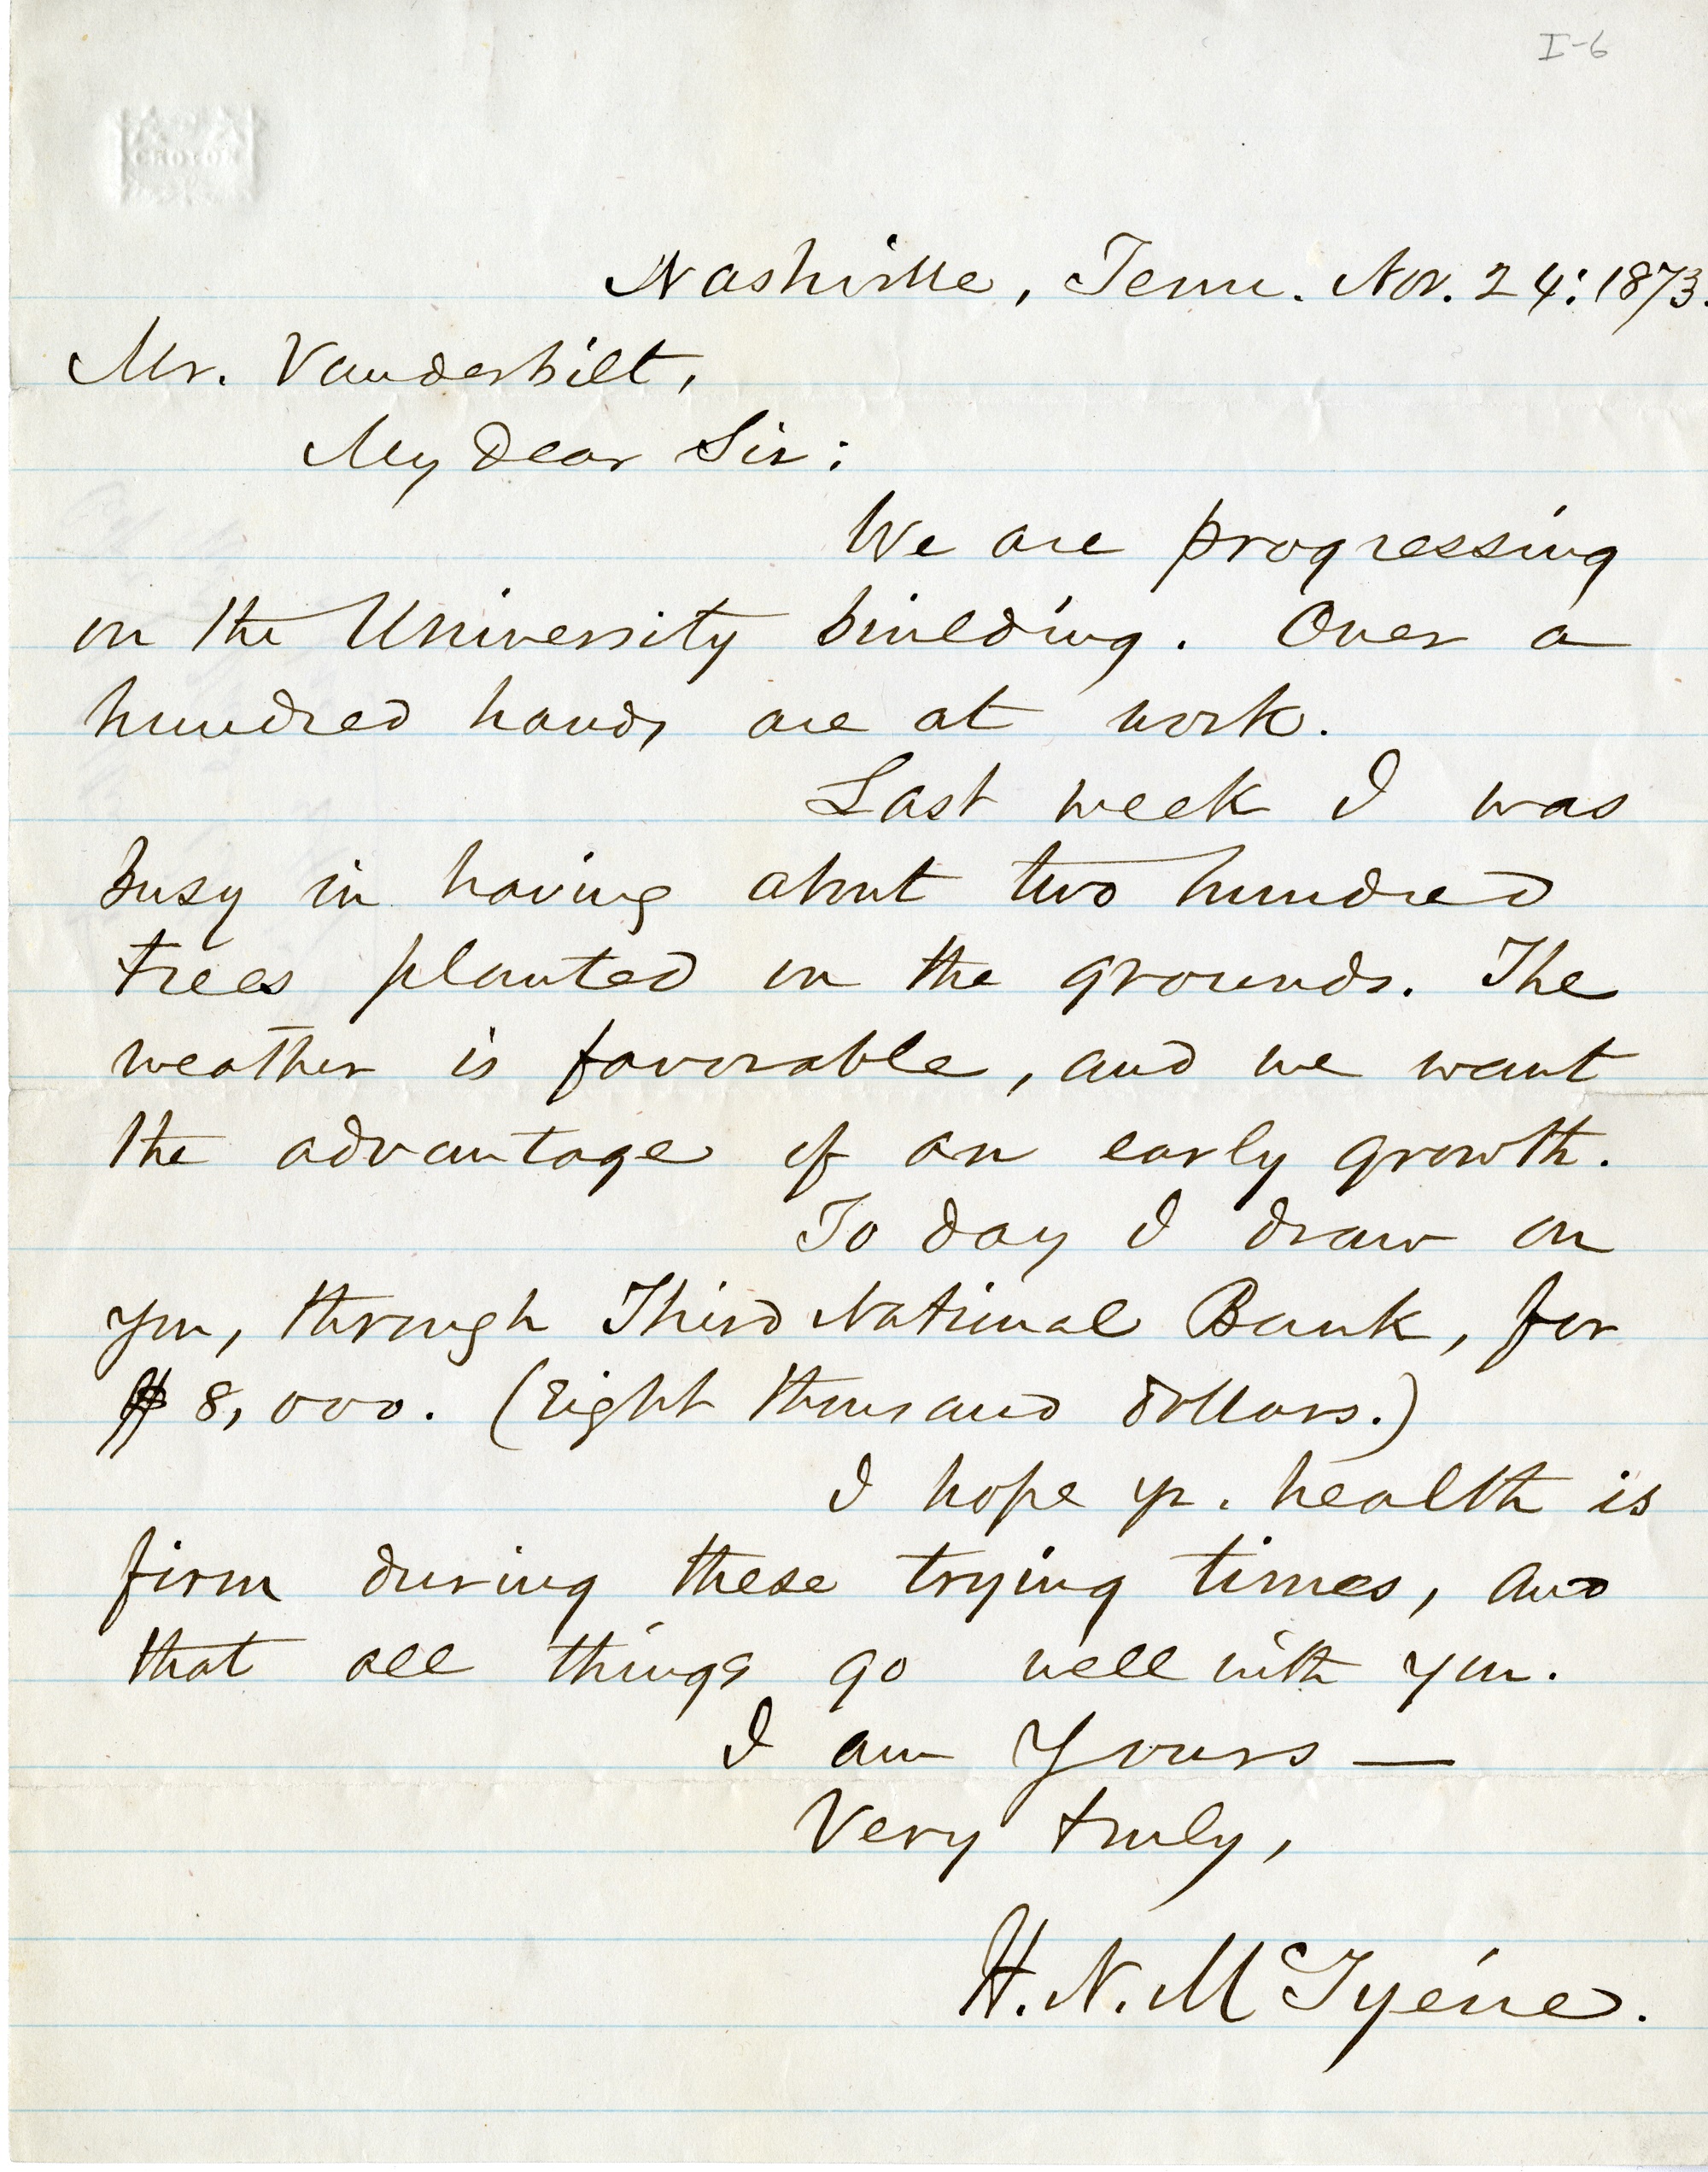 I-6
CROTON
Nashville, Tenn. Nov. 24: 1873.
Mr. Vanderbilt,
My Dear Sir:
We are progressing
on the University building. Over a
hundred hands are at work.
Last week I was
busy in having about two hundred
trees planted on the grounds. The
weather is favorable, and we want
the advantage of an early growth.
To day I draw on
you, through Third National Bank, for
$8,000. (Eight thousand dollars.)
I hope yr. health is
firm during these trying times, and
that all things go well with you.
I am Yours —
Very truly,
H. N. McTyeire.